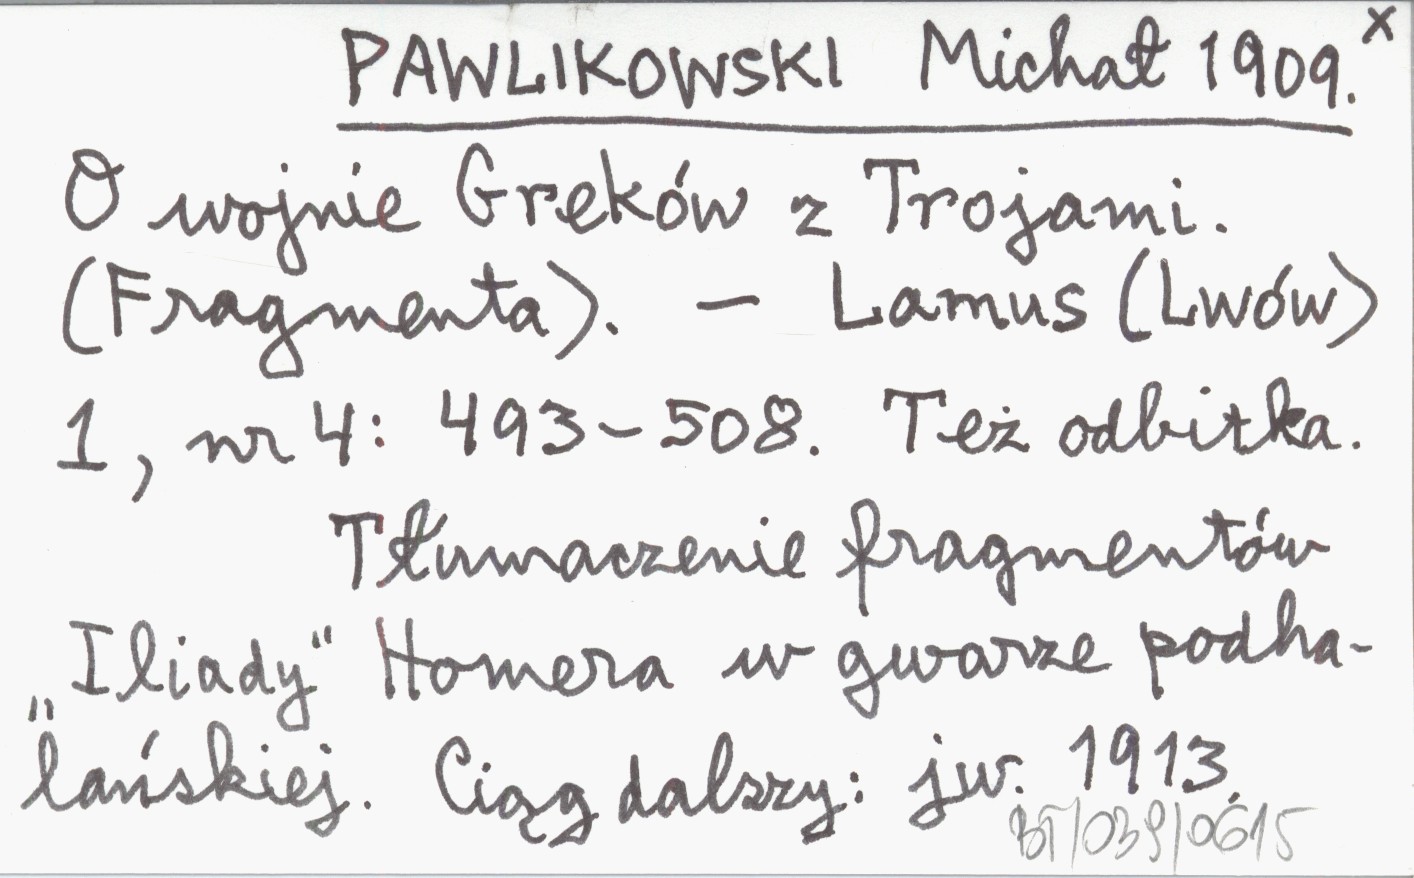 PAWLIKOWSKI Michał 1909. x
O wojnie Greków z Trojami.
(Fragmenta). – Lamus (Lwów)
1, nr 4: 493–508. Też odbitka.
Tłumaczenie fragmentów
„Iliady" Homera w gwarze podha-
lańskiej. Ciąg dalszy: jw. 1913.
BT/039/0615